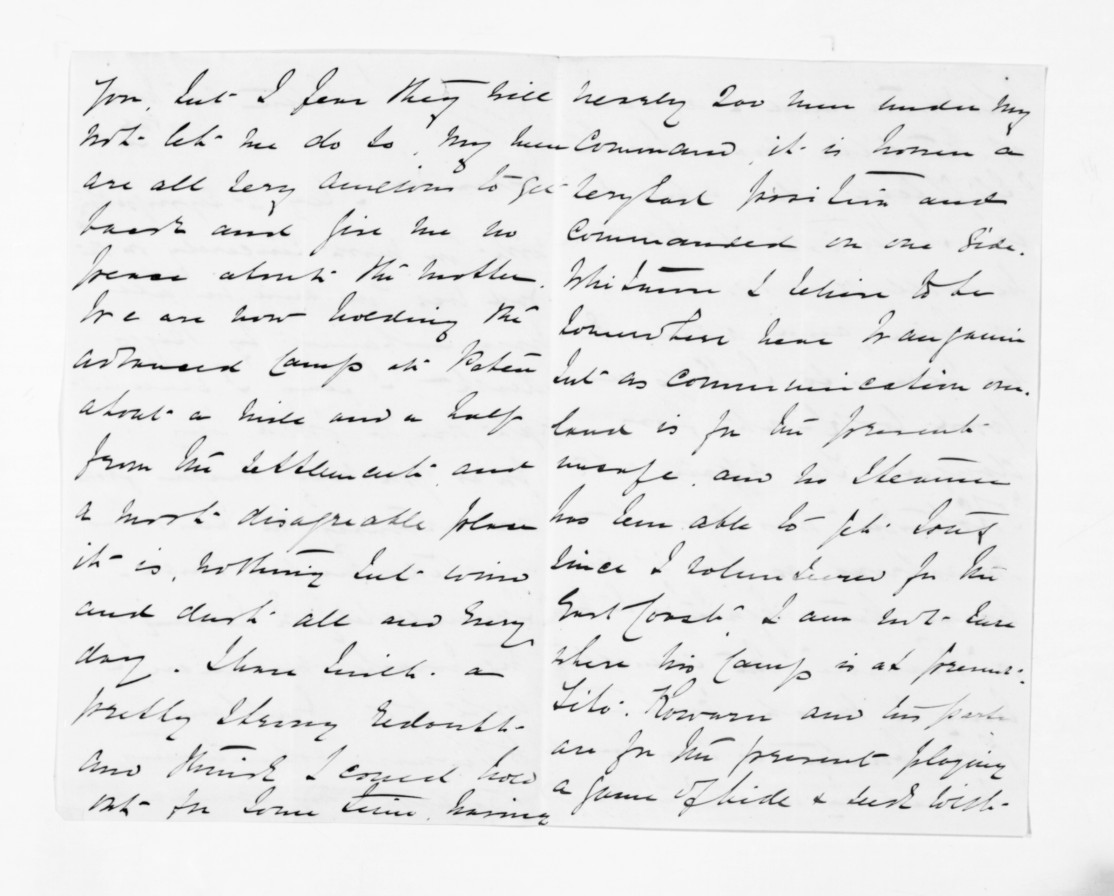 you, but I fear they will
not let me do so, my men
are all very anxious to get
back and give me no
peace about the matter.
We are now holding the
advanced Camp at Patea
about a mile and a half
from the settlement, and
a most disagreable place
it is, nothing but wind
and dust all and every
day. I have built a
pretty strong redoubt
and think I could hold
out for some time, having
nearly 200 men under my
command, it is however a
very bad position and
commanded on one side.
Whitmore I believe to be
somewhere near Wanganui
but as communication over-
land is for the present
unsafe, and no steamer
has been able to get South
since I volunteered for the
East Coast, I am not sure
where his Camp is at present.
Tito. Kowaru and his party
are for the present playing
a game of hide & seek with